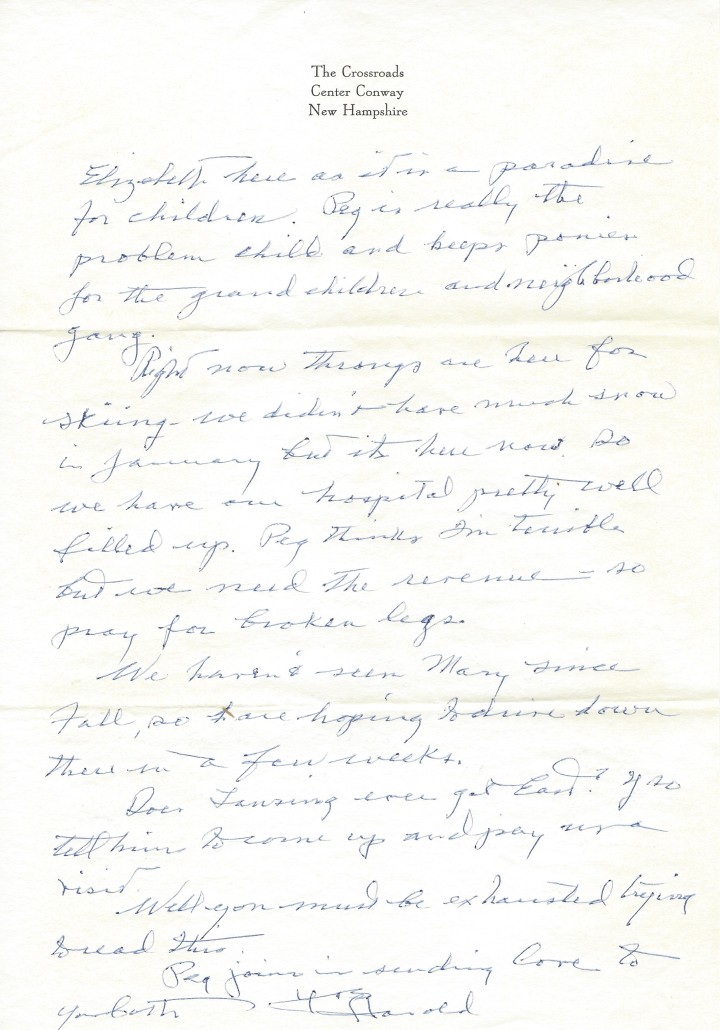 The Crossroads
Center Conway
New Hampshire
Elizabeth here as it is a paradise
for children. Peg is really the
problem child and keeps ponies
for the grand children and neighborhood
gang.
Right now throngs are here for
skiing - we didin't have much snow
in January but its here now. So
we have our hospital pretty well
filled up. Peg thinks I'm terrible
but we need the revenue - so
pray for broken legs.
We haven't seen Mary since
Fall, so are hoping to drive down
there in a few weeks.
Does Lansing ever get East? If so
tell him to come up and pay us a
visit.
Well you must be exhausted trying
to read this.
Peg joins in sending love to
you both
Harold